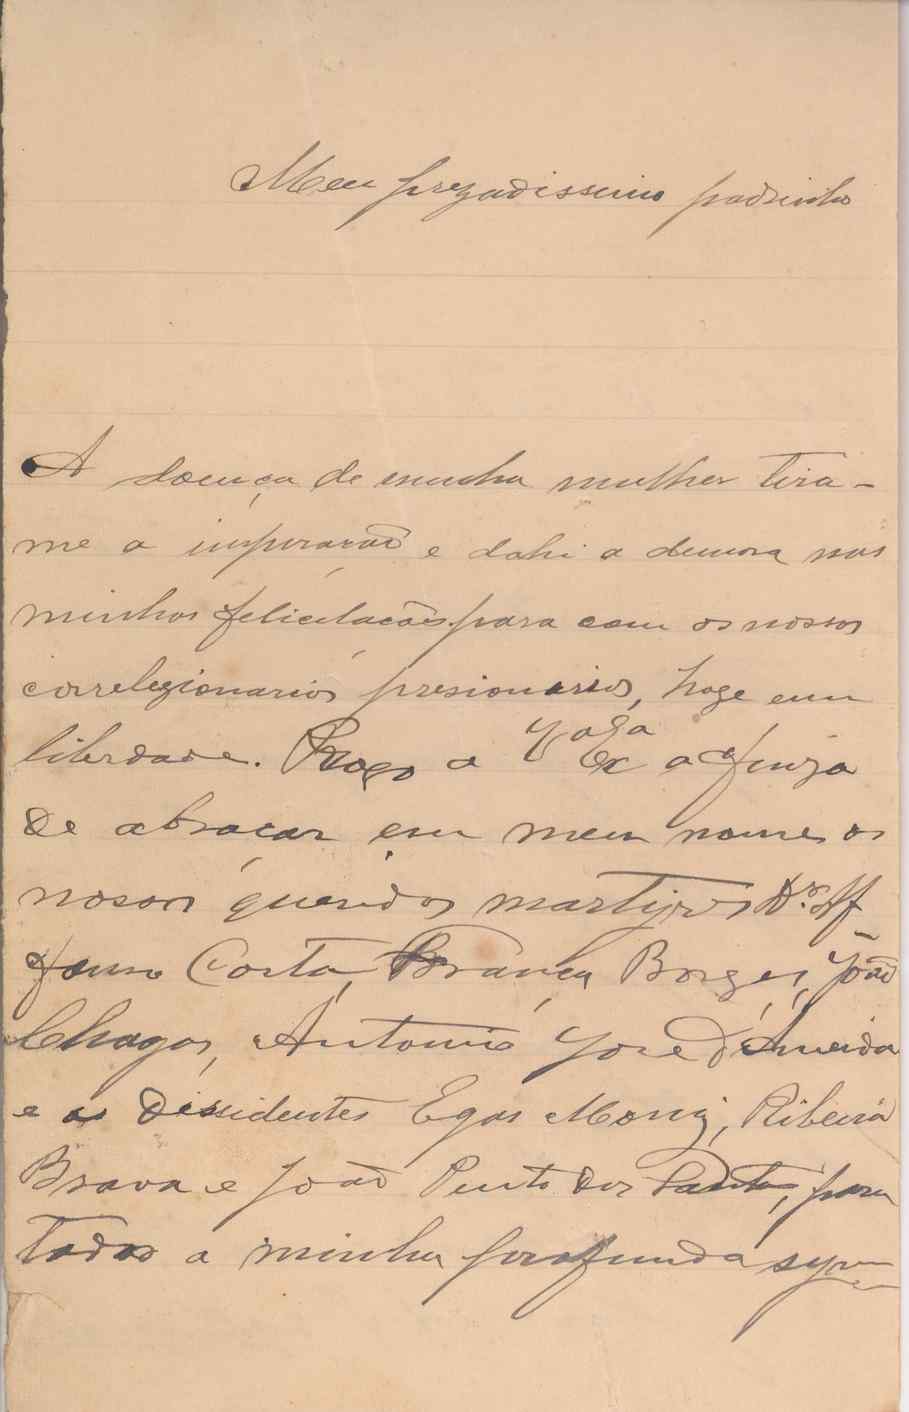 Meu prezadissimo padrinho
A doença de minha mulher tira-
me a inspiração e dahi a demora nas
minhas felicitações para com os nossos
correlegionarios presionarios, hoge em
liberdade. Rogo a V.ª Ex.ª a fineza
de abraçar em meu nome os
nosos queridos martyres Drs. Af
fonso Costa, França Borges, João
Chagas, Antonio José d'Almeida
e os dissidentes Egas Moniz, Ribeira
Brava e João Pinto dos Santos, para
todos a minha profunda sym